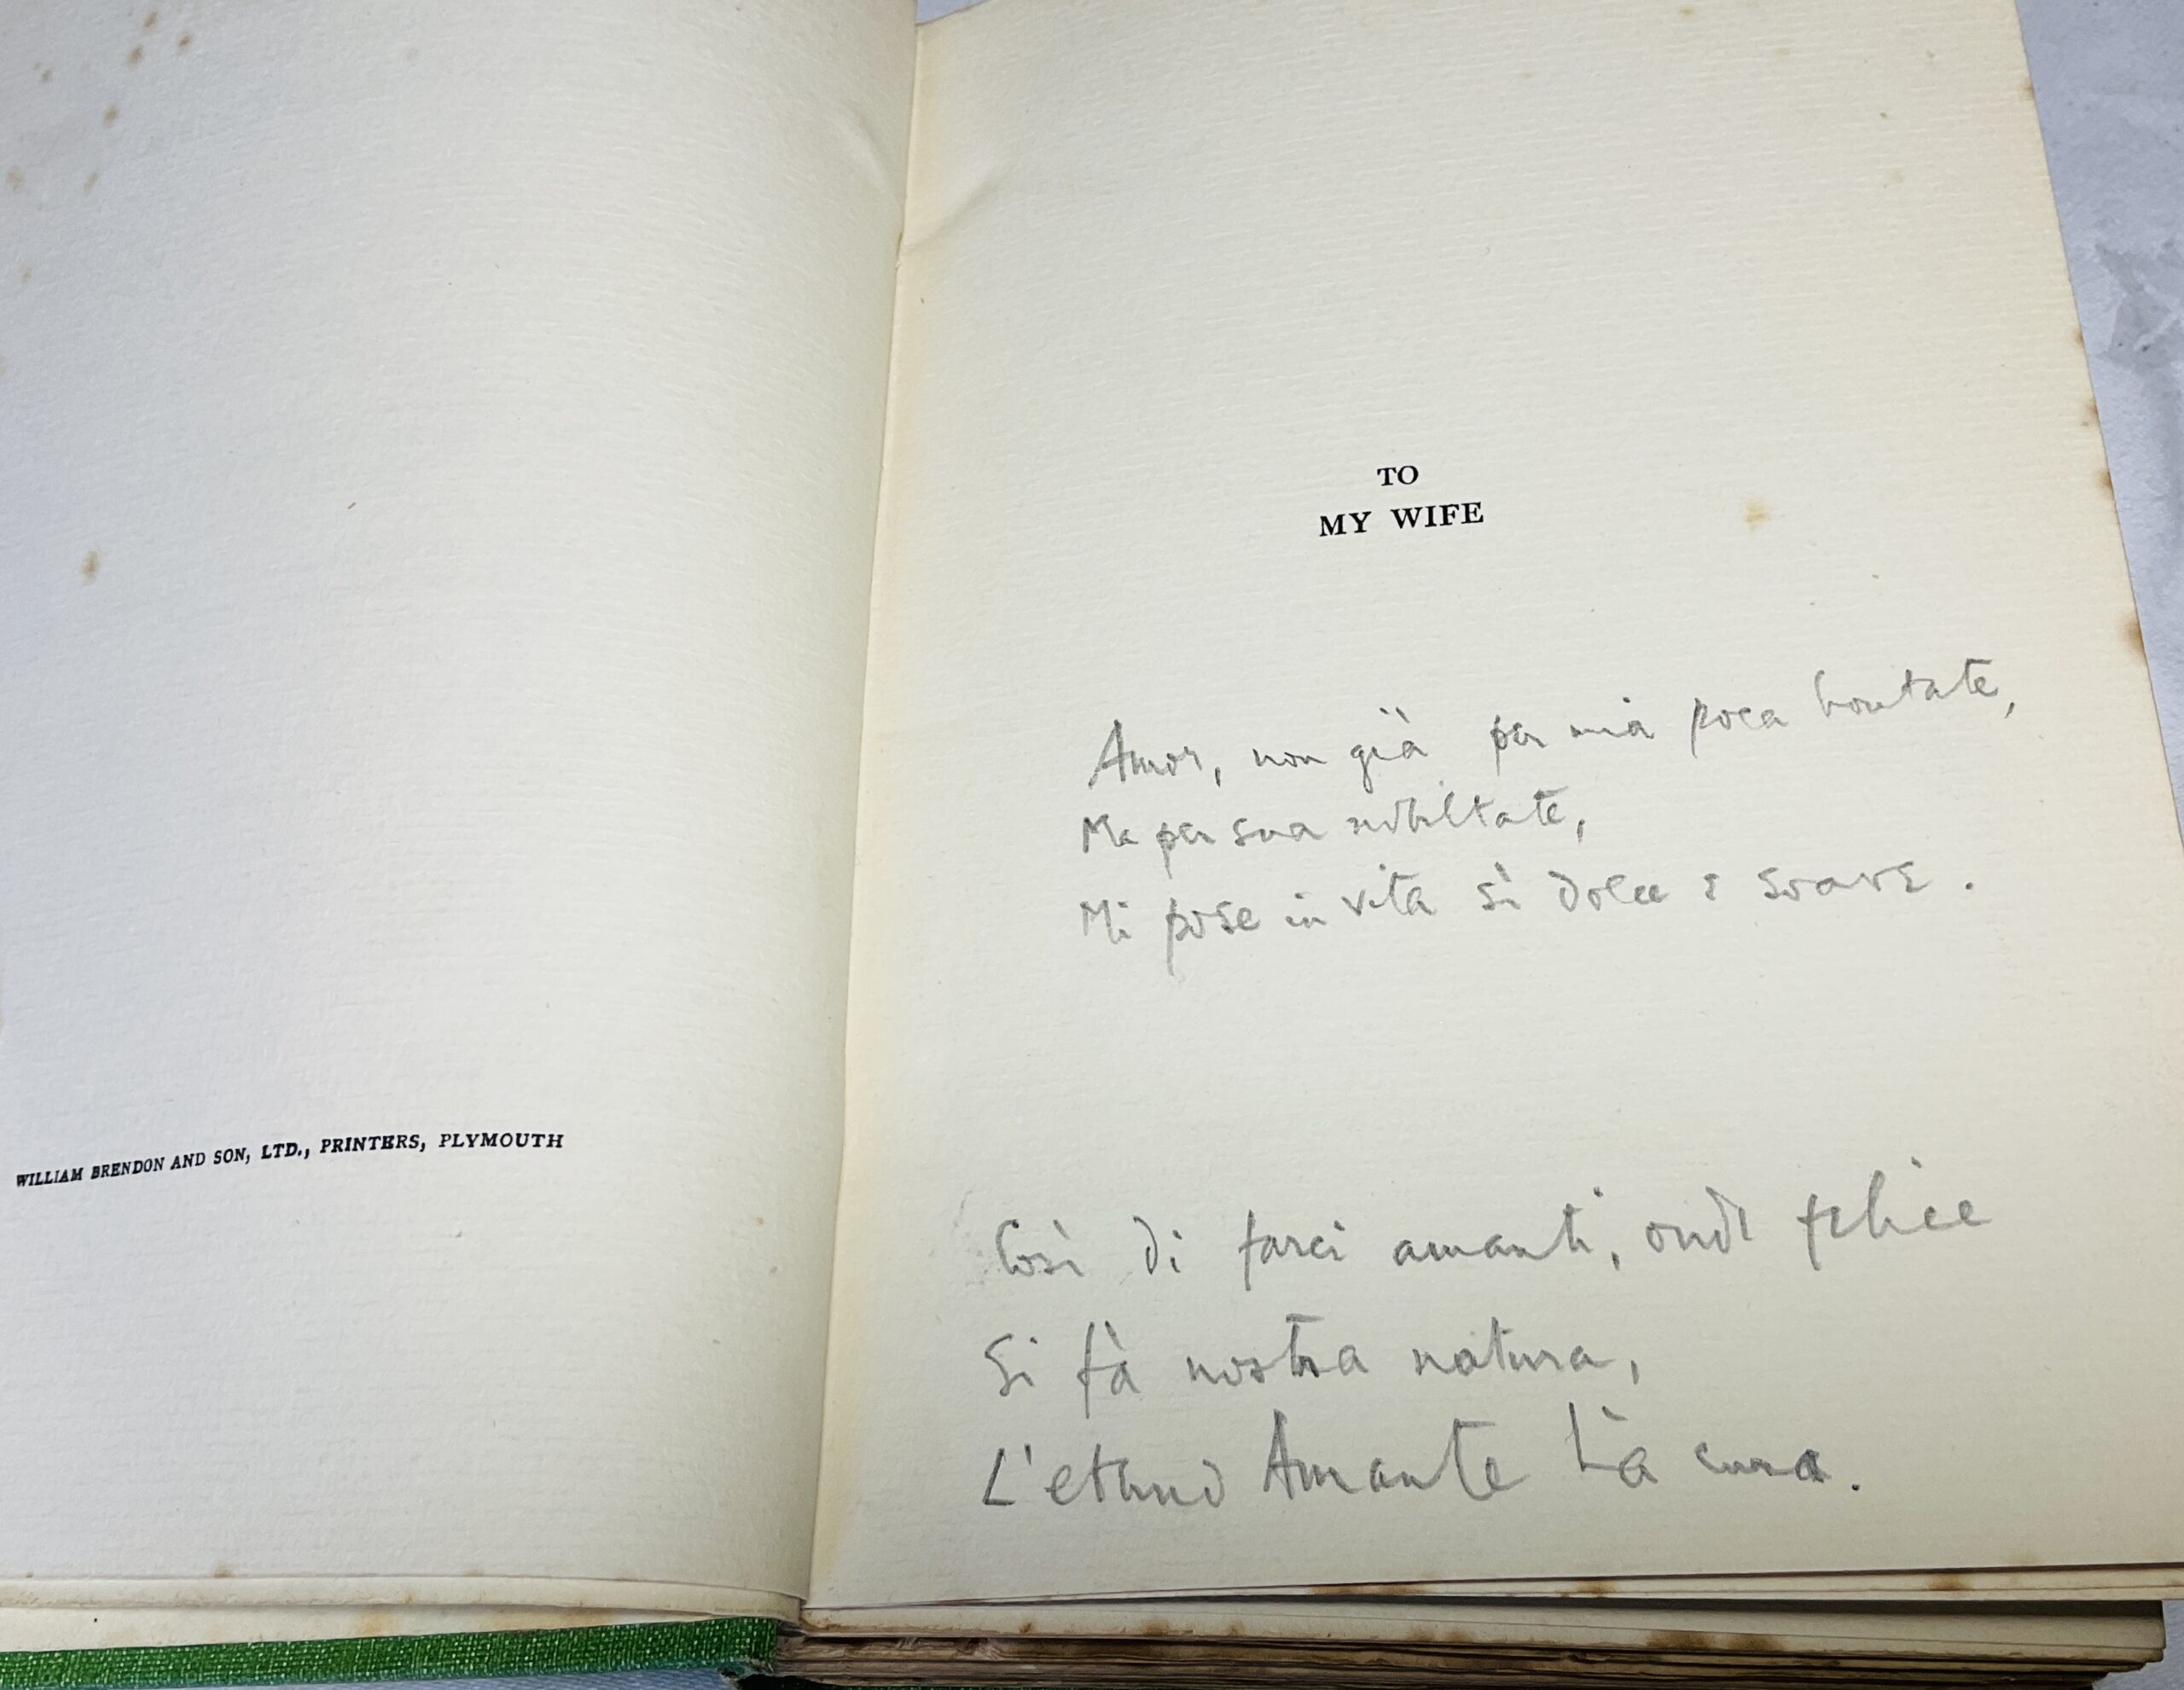 WILLIAM BRENDON AND SON, LTD., PRINTERS, PLYMOUTH
TO
MY WIFE
Amor, non già per mia poca bontate,
Ma per sua nobiltate,
Mi pose in vita sì dolce e soave.
Così di farci amanti, onde felice
Si fà nostra natura,
L'eterno Amante hà cura.